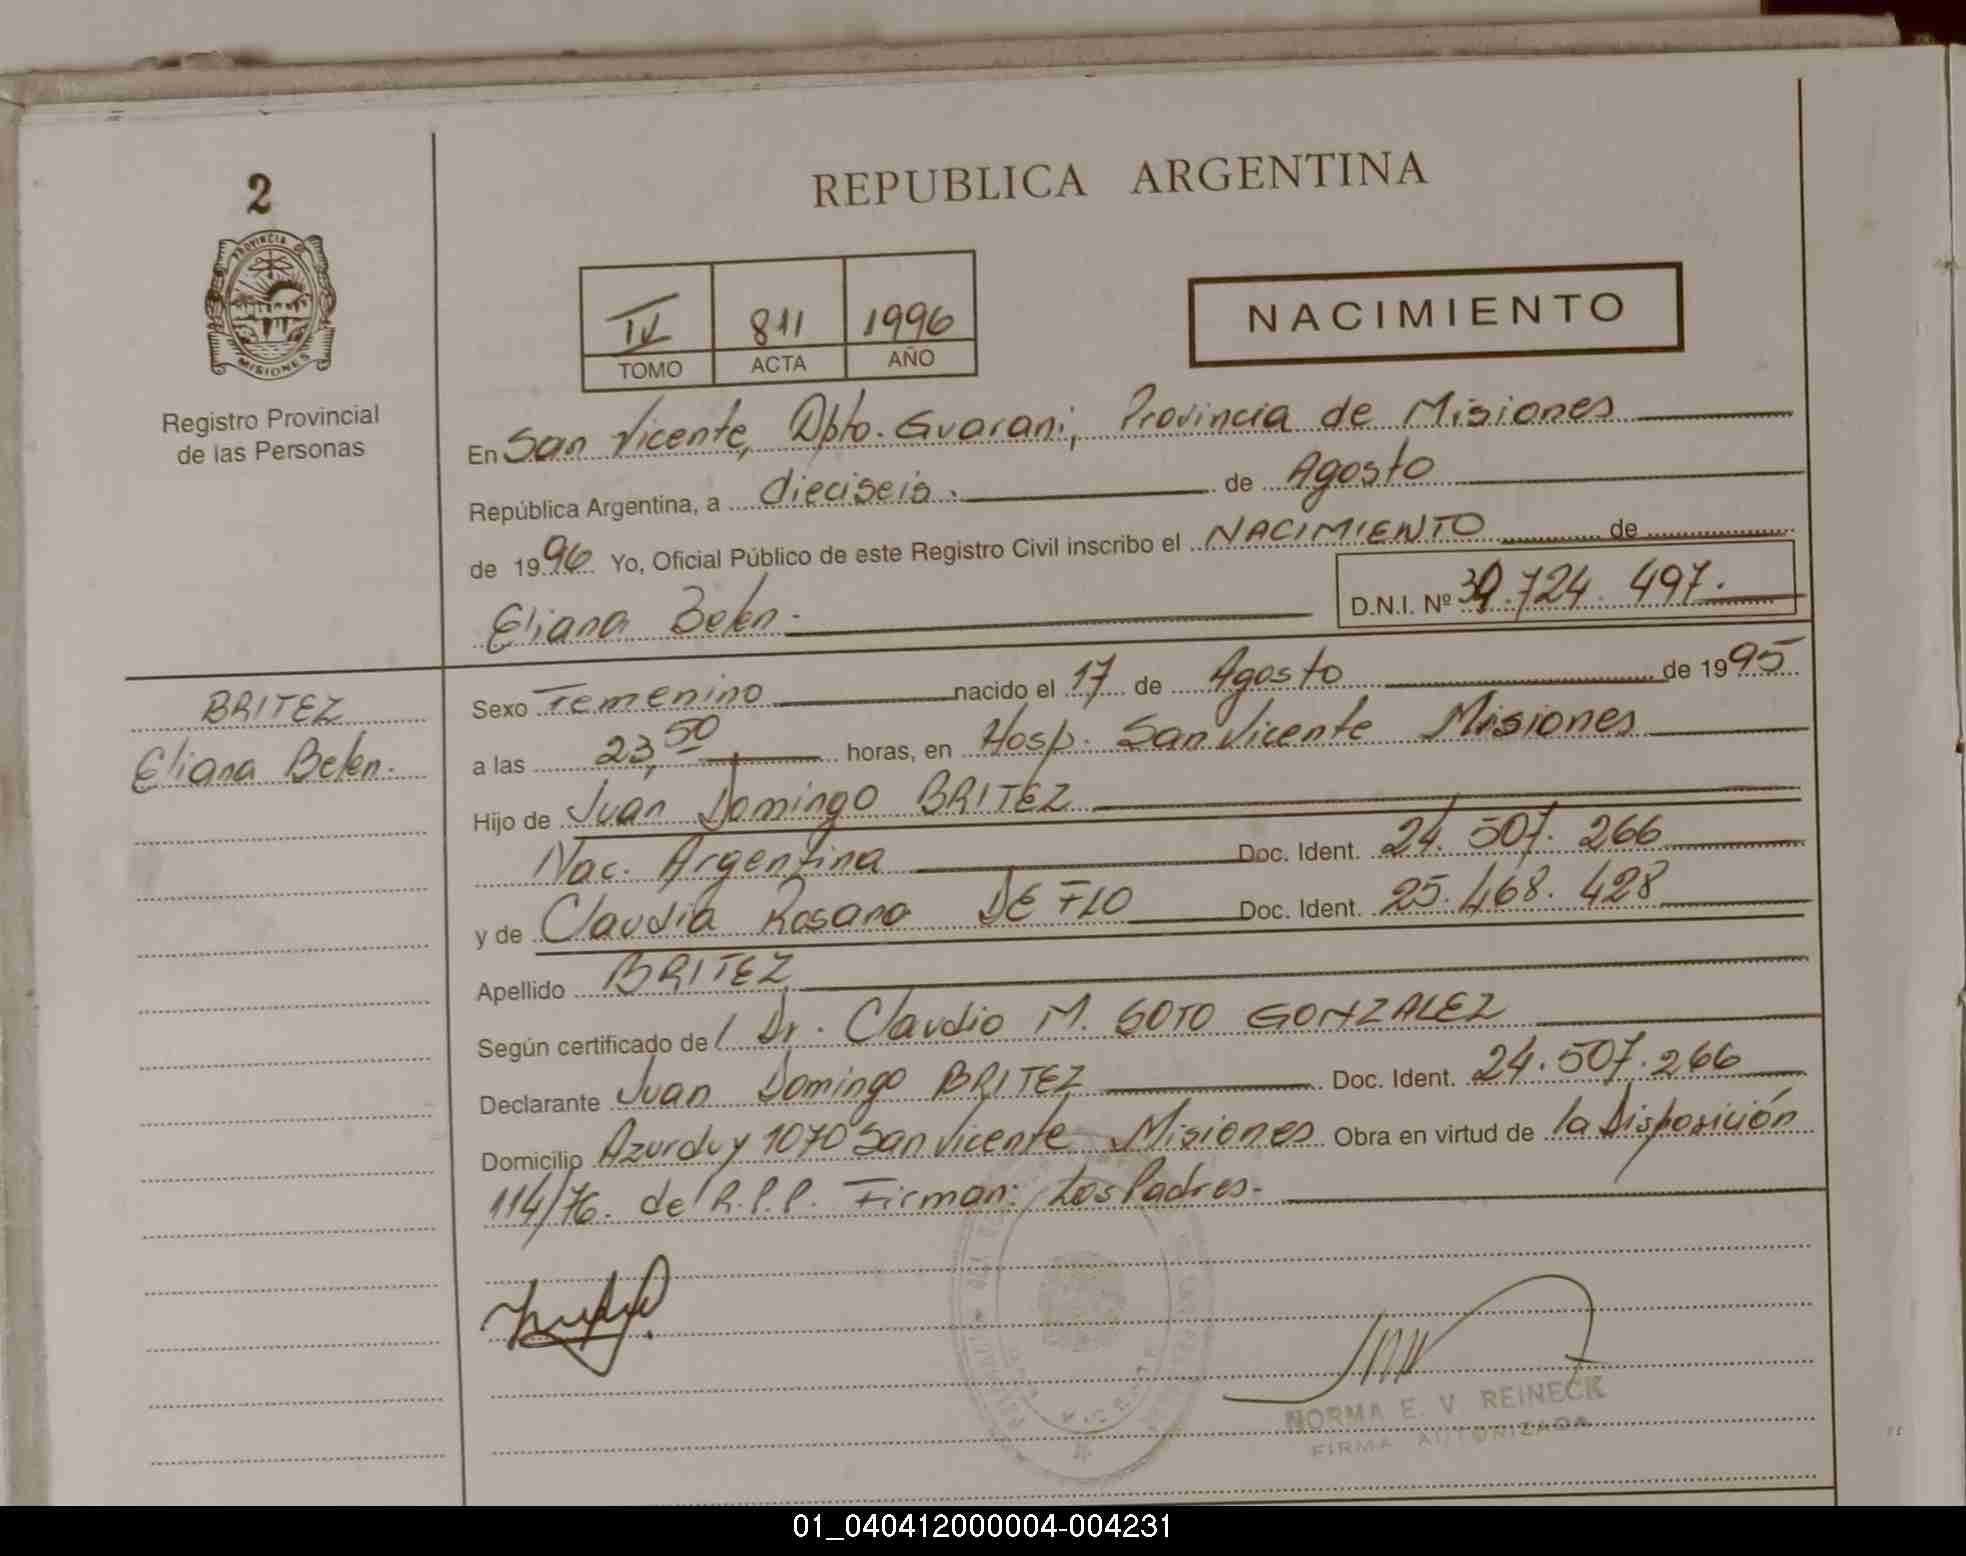 REPUBLICA ARGENTINA
2
PROVINCIA DE MISIONES
Registro Provincial
de las Personas
IV 811 1996
TOMO ACTA AÑO
NACIMIENTO
En San Vicente, Dpto. Guarani, Provincia de Misiones
República Argentina, a dieciseis. de Agosto
de 1996 Yo, Oficial Público de este Registro Civil inscribo el NACIMIENTO de
Eliana Belen.
D.N.I. Nº 39.724.497.
BRITEZ
Eliana Belen.
Sexo Femenino nacido el 17 de Agosto de 1995
a las 23,50 horas, en Hosp. San Vicente Misiones
Hijo de Juan Domingo BRITEZ
Nac. Argentina Doc. Ident. 24.507.266
y de Claudia Rosana DE FLO Doc. Ident. 25.468.428
Apellido BRITEZ
Según certificado de Dr. Claudio M. SOTO GONZALEZ
Declarante Juan Domingo BRITEZ Doc. Ident. 24.507.266
Domicilio Azurduy 1070 San Vicente Misiones Obra en virtud de la Disposición
114/76. del R.P.P. Firman: Los Padres.
NORMA E. V. REINECK
FIRMA AUTORIZADA
01_040412000004-004231